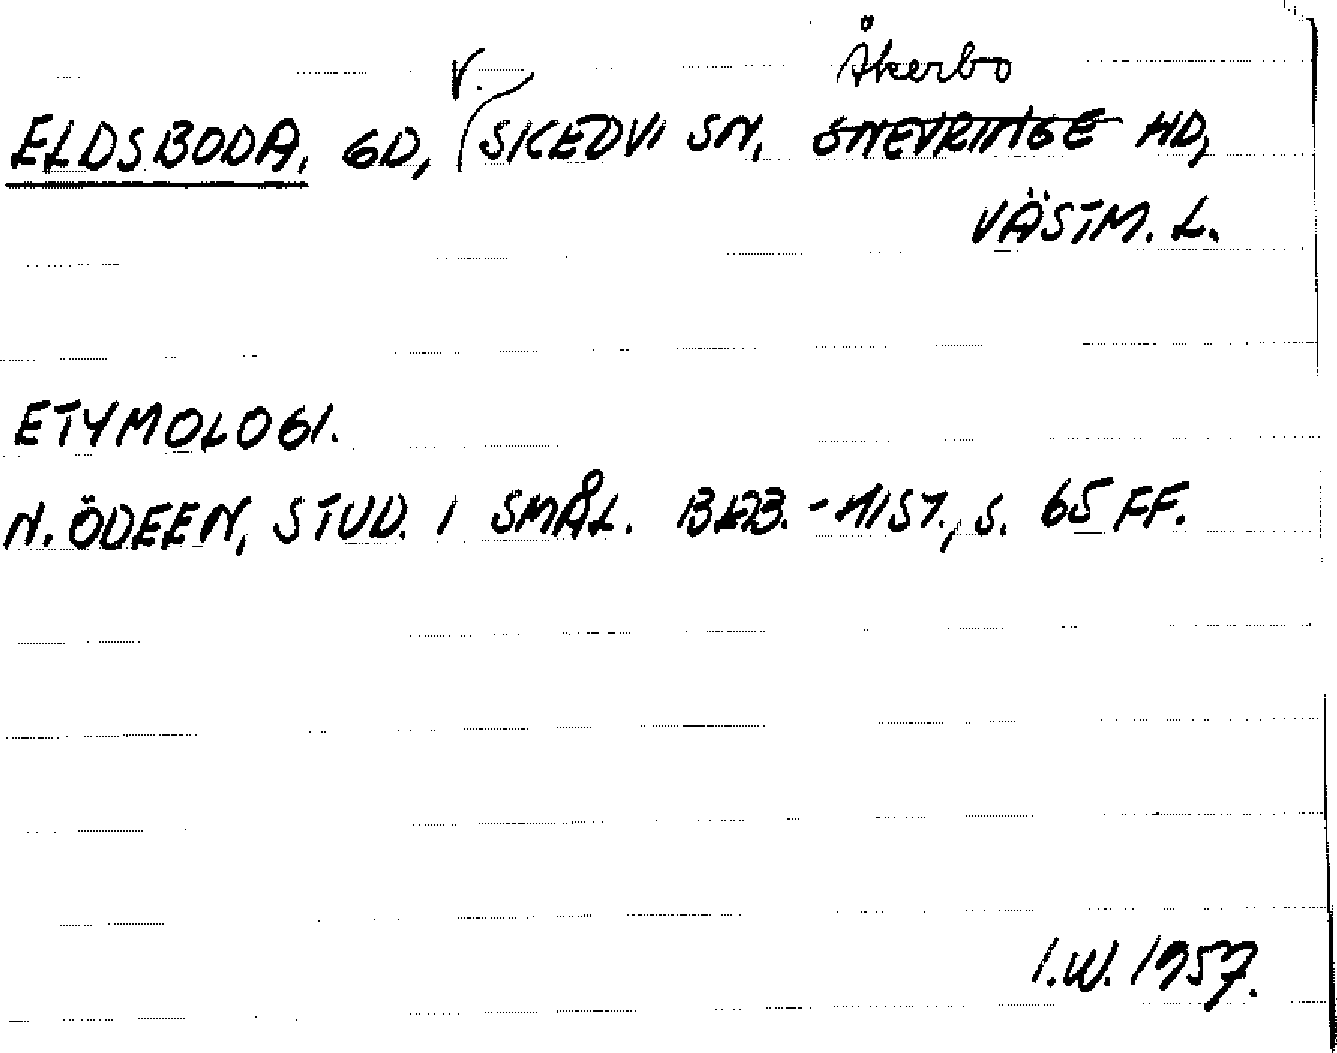 ELDSBODA, GD, V. SKEDVI SN, SNEVRINGE Åkerbo HD,
VÄSTM. L.
ETYMOLOGI.
N. ÖDEEN, STUD. I SMÅL. BEB.-HIST., S. 65 FF.
I.W. 1957.